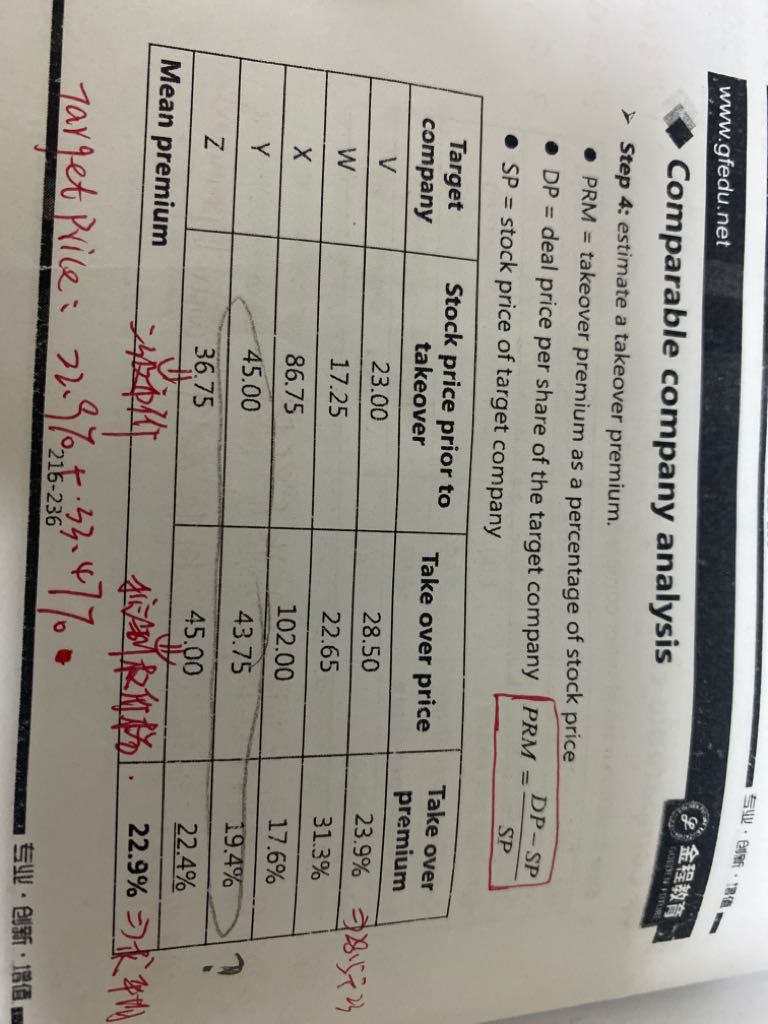 www.gfedu.net
专业·创新·增值
金程教育
GOLDEN FUTURE
Comparable company analysis
➢ Step 4: estimate a takeover premium.
● PRM = takeover premium as a percentage of stock price
● DP = deal price per share of the target company
● SP = stock price of target company
PRM = DP − SP / SP
Target company | Stock price prior to takeover | Take over price | Take over premium
V | 23.00 | 28.50 | 23.9%
W | 17.25 | 22.65 | 31.3%
X | 86.75 | 102.00 | 17.6%
Y | 45.00 | 43.75 | 19.4% ?
Z | 36.75 | 45.00 | 22.4%
Mean premium | 22.9%
Target price:
216-236
专业·创新·增值